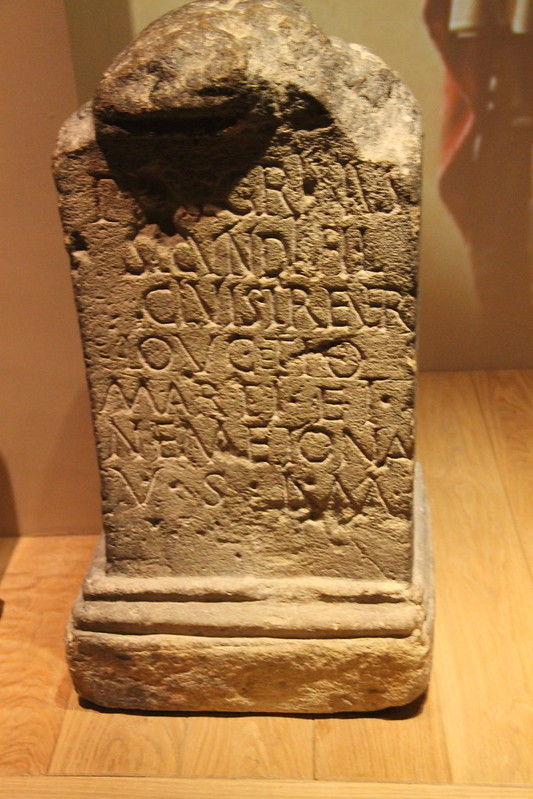 PEREGRINVS
SECVNDI FIL
CIVIS TREVER
LOVCETIO
MARTI ET
NEMETONA
V · S · L · M